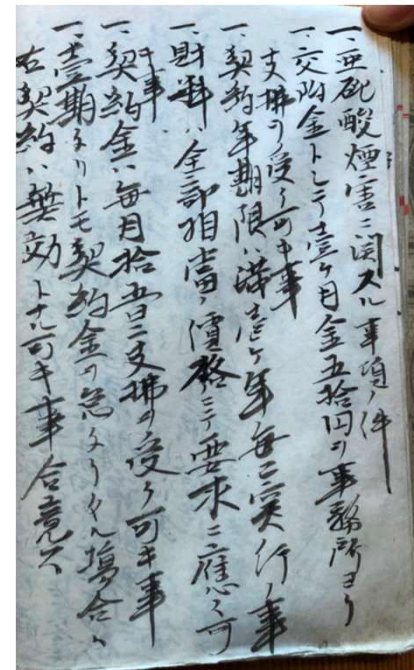 一、亜砒酸煙害ニ関スル事項ノ件
一、交附金トシテ壹ヶ月金五拾円ヲ事務所ヨリ
支拂ヲ受ク可キ事
一、契約年期限ハ満壱ヶ年毎ニ実行ノ事
一、財料ハ全部相當ノ價格ニテ要求ニ應ズ可
キ事
一、契約金ハ毎月拾五日ニ支拂ヲ受ク可キ事
一、壹期タリトモ契約金ヲ怠タリタル場合ハ
右契約ハ無効トナル可キ事合意ス